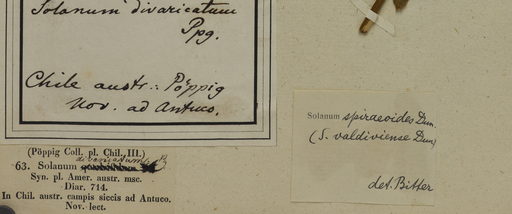 Solanum divaricatum
Ppg.
Chile austr.: Pöppig
Nov. ad Antuco.
(Pöppig Coll. pl. Chil. III.)
divaricatum P.
63. Solanum
Syn. pl. Amer. austr. msc.
Diar. 714.
In Chil. austr. campis siccis ad Antuco.
Nov. lect.
Solanum spiraeoides Dun.
(S. valdiviense Dun)
det. Bitter